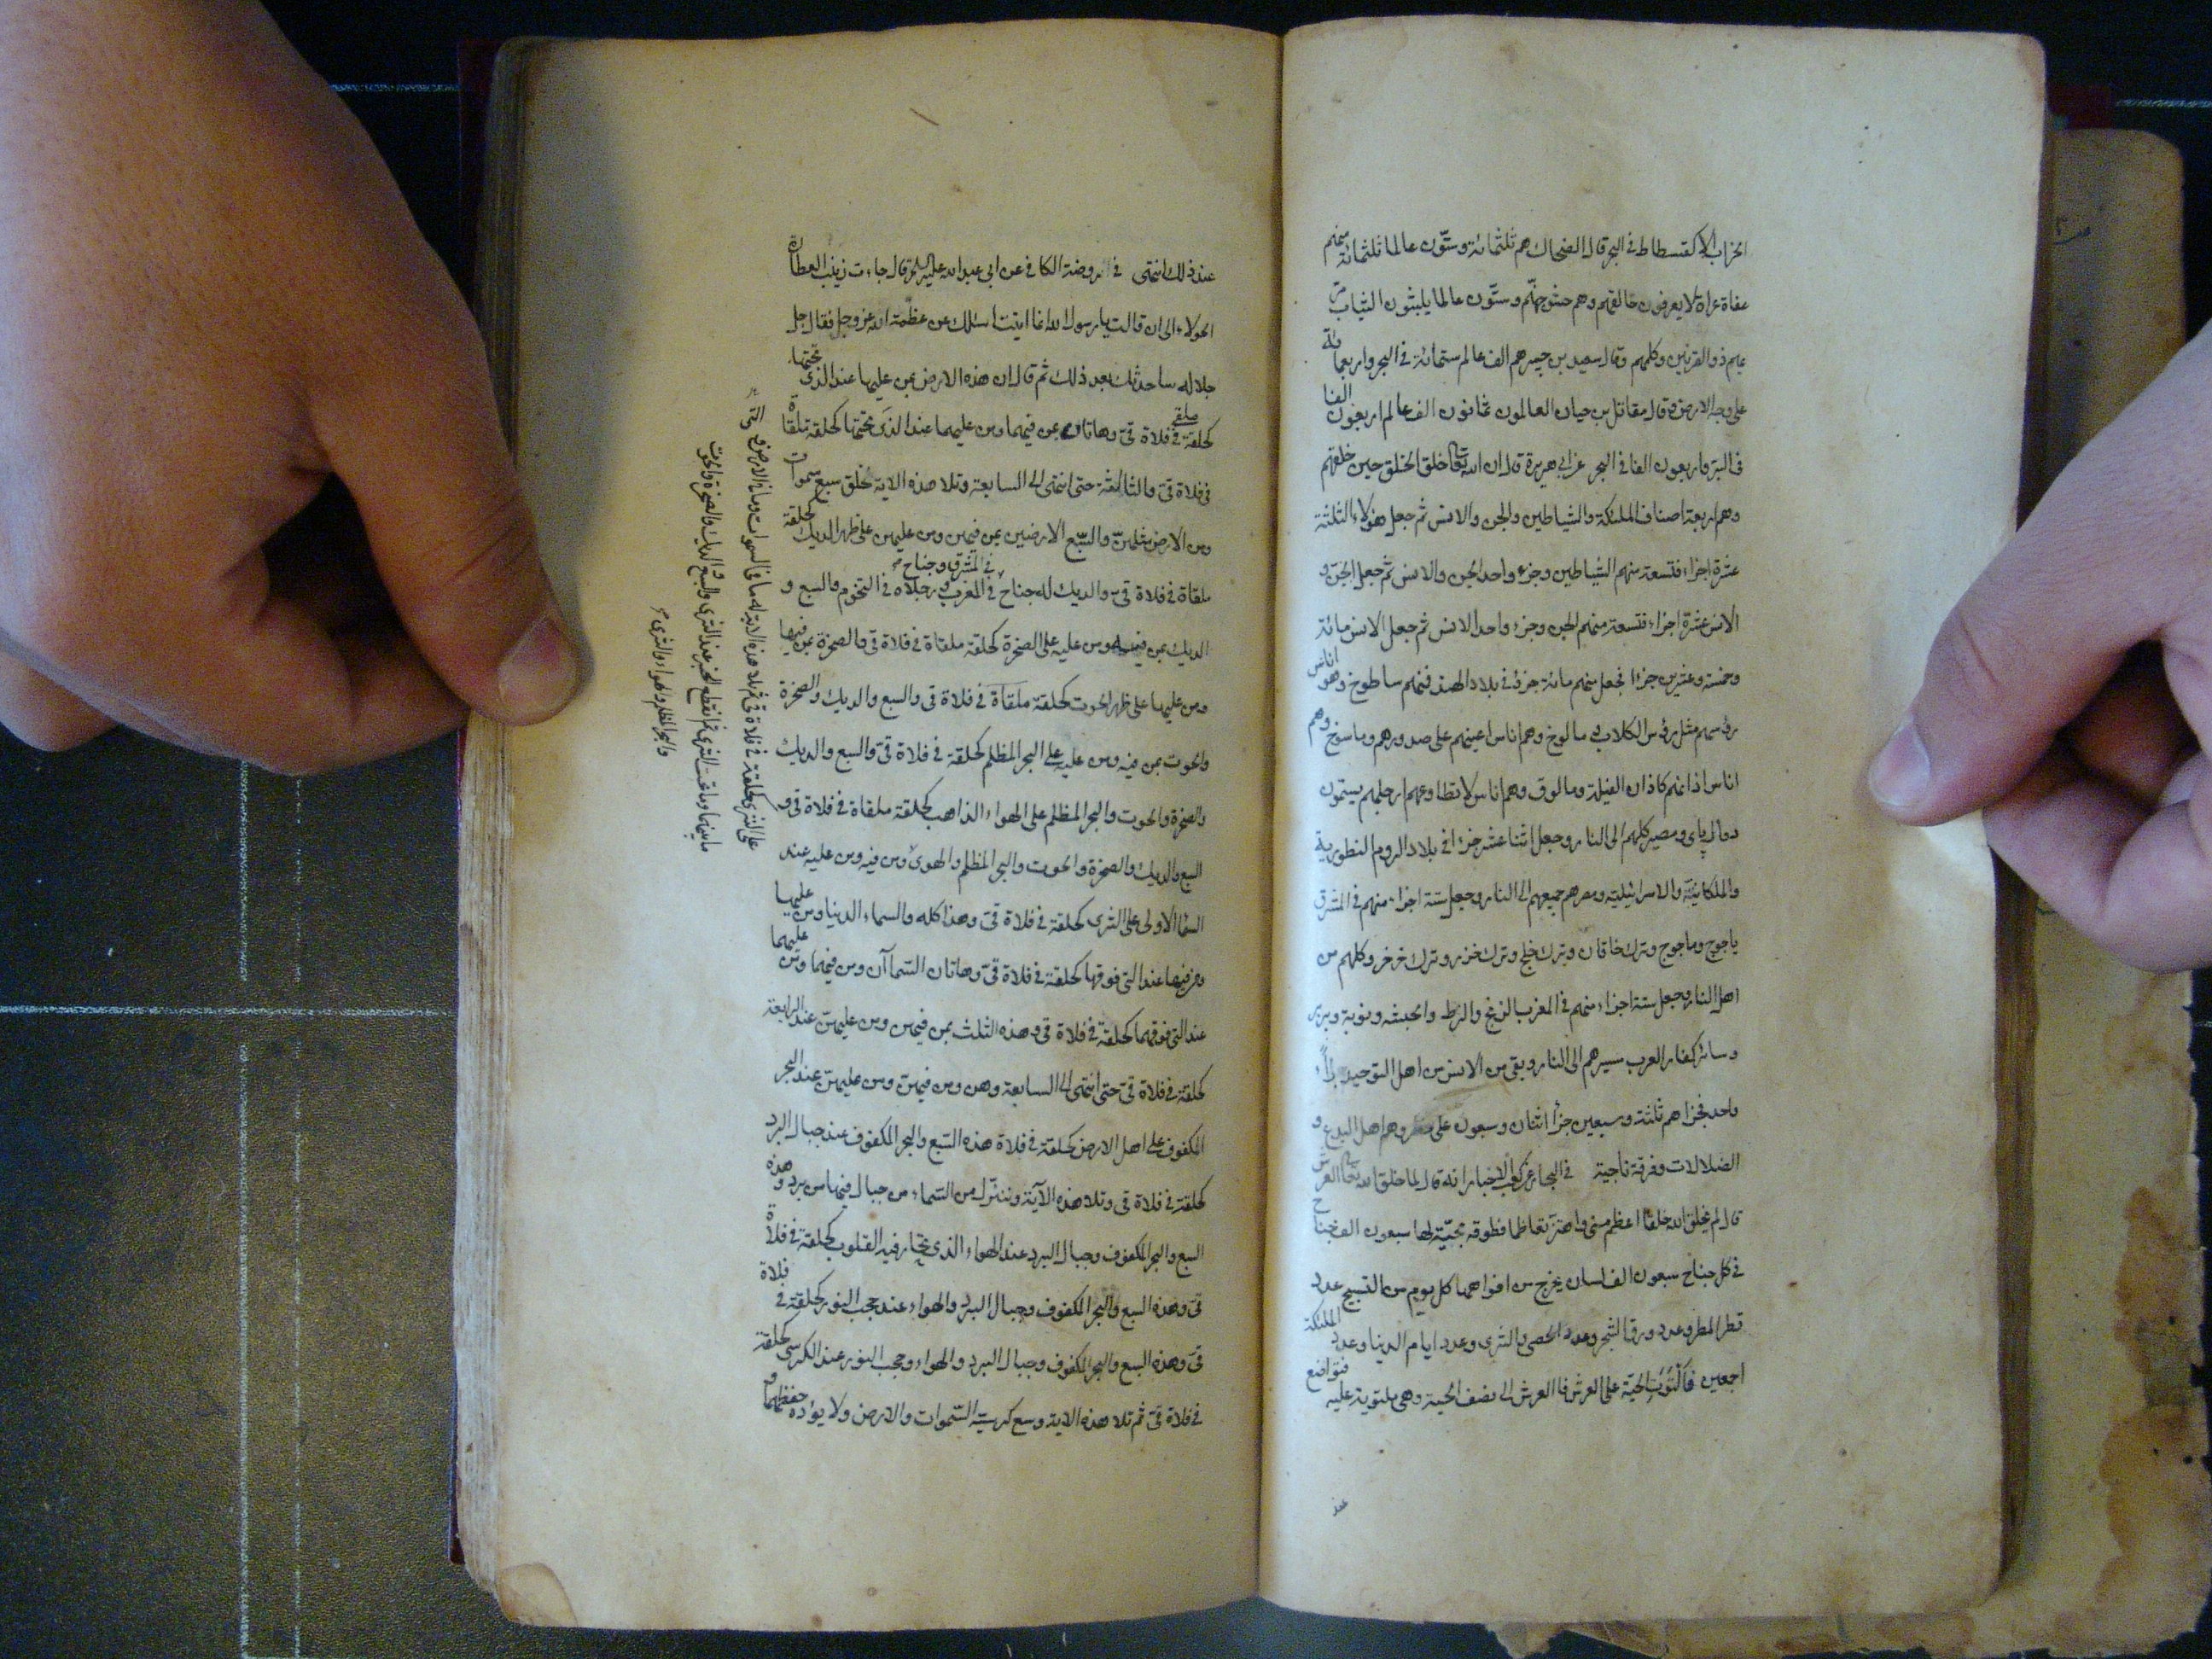 الخراب الا كفسطاط في البحر قال الضحاك هم ثلثمائة وستون عالما ثلثمائة منهم
حفاة عراة لا يعرفون خالقهم وهم حشو جهنم وستون عالما يلبثون الثياب مر
عليهم ذو القرنين وكلمهم وقال سعيد بن جبير هم الف عالم ستمائة في البحر واربعمائة
على وجه الارض وقال مقاتل بن حيان العالمون ثمانون الف عالم اربعون الفا
في البر واربعون الفا في البحر عن ابي هريرة قال ان الله تعالى خلق الخلق حين خلقهم
وهم اربعة اصناف الملئكة والشياطين والجن والانس ثم جعل هؤلاء الثلثة
عشرة اجزاء فتسعة منهم الشياطين وجزء واحد الجن والانس ثم جعل الجن و
الانس عشرة اجزاء فتسعة منهم الجن وجزء واحد الانس ثم جعل الانس مائة
وخمسة وعشرين جزءا فجعل منهم مائة جزء في بلاد الهند فمنهم ساطوخ وهو اناس
رؤسهم مثل رؤس الكلاب ومالوخ وهم اناس اعينهم على صدورهم وماسوخ وهم
اناس اذانهم كاذان الفيلة ومالوق وهم اناس لا تطاوعهم ارجلهم يسمون
دوال پاى ومصير كلهم الى النار وجعل اثنا عشر جزءا في بلاد الروم النطورية
والملكانية والاسرائيلية ومصيرهم جميعهم الى النار وجعل ستة اجزاء منهم في المشرق
ياجوج وماجوج وترك خاقان وترك خلج وترك خزر وترك خرخر وكلهم من
اهل النار وجعل ستة اجزاء منهم في المغرب الزنج والزط والحبشه ونوبة وبربر
وسائر كفار العرب سيرهم الى النار وبقى من الانس من اهل التوحيد جزء
واحد فجزاهم ثلثة وسبعين جزأ اثنان وسبعون على خطر وهم اهل البدع و
الضلالات وفرقة ناجية في البحار عن كعب الاخبار انه قال لما خلق الله تعالى العرش
قال لم يخلق الله خلقا اعظم مني واهتز تعاظما فطوقه بحيّة لها سبعون الف جناح
في كل جناح سبعون الف لسان يخرج من افواهها كل يوم من التسبيح عدد
قطر المطر وعدد ورق الشجر وعدد الحصى والثرى وعدد ايام الدنيا وعدد الملئكة
اجمعين فالتوت الحيّة على العرش فالعرش الى نصف الحية وهى ملتوية عليه فتواضع
عند
عند ذلك انتهى في روضة الكافي عن ابي عبد الله عليه السلم قال جاءت زينب العطارة
الحولاء الى ان قالت يا رسول الله انما اتيت اسئلك عن عظمة الله عز وجل فقال جل
جلاله ساحدثك بعد ذلك ثم قال ان هذه الارض بمن عليها عند الذي تحتها
كحلقة ملقى في فلاة قيّ وهاتان بمن فيهما ومن عليهما عند الذي تحتها كحلقة ملقاة
في فلاة قيّ والثالثة حتى انتهى الى السابعة وتلا هذه الاية خلق سبع سموات
ومن الارض مثلهنّ والسبع الارضين بمن فيهن ومن عليهن على ظهر الديك كحلقة
ملقاة في فلاة قيّ والديك له جناح في المغرب و في المشرق وجناح رجلاه في التخوم والسبع و
الديك بمن فيه ومن عليه على الصخرة كحلقة ملقاة في فلاة قيّ والصخرة بمن فيها
ومن عليها على ظهر الحوت كحلقة ملقاة في فلاة قي والسبع والديك والصخرة
والحوت بمن فيه ومن عليه على البحر المظلم كحلقة في فلاة قيّ والسبع والديك
والصخرة والحوت والبحر المظلم على الهواء الذاهب كحلقة ملقاة في فلاة قي و
السبع والديك والصخرة والحوت والبحر المظلم والهوى ومن فيه ومن عليه عند
السماء الاولى على الثرى كحلقة في فلاة قيّ وهذا كله والسماء الدنيا ومن عليها
ومن فيها عند التي فوقها كحلقة في فلاة قيّ وهاتان السماآن ومن فيهما ومن عليهما
عند التي فوقهما كحلقة في فلاة قي وهذه الثلث بمن فيهن ومن عليهن عند الرابعة
كحلقة في فلاة قيّ حتى انتهى الى السابعة وهن ومن فيهن ومن عليهن عند البحر
المكفوف على اهل الارض كحلقة في فلاة هذه السبع والبحر المكفوف عند جبال البرد
كحلقة في فلاة قي وتلا هذه الآية وننزل من السماء من جبال فيها من برد وهذه
السبع والبحر المكفوف وجبال البرد عند الهواء الذي تحار فيه القلوب كحلقة في فلاة
قيّ وهذه السبع والبحر المكفوف وجبال البرد والهواء عند حجب النور كحلقة في فلاة
قيّ وهذه السبع والبحر المكفوف وجبال البرد والهواء وحجب النور عند الكرسي كحلقة
في فلاة قيّ ثم تلا هذه الاية وسع كرسيّه السموات والارض ولا يؤده حفظهما و
على الثرى كحلقة في فلاة قي ثم تلا هذه الاية له ما في السموات وما في الارض و
ما بينهما وما تحت الثرى ثم انقطع الخبر عند الثرى والسبع والديك والصخرة والحوت
والبحر المظلم والهواء والثرى